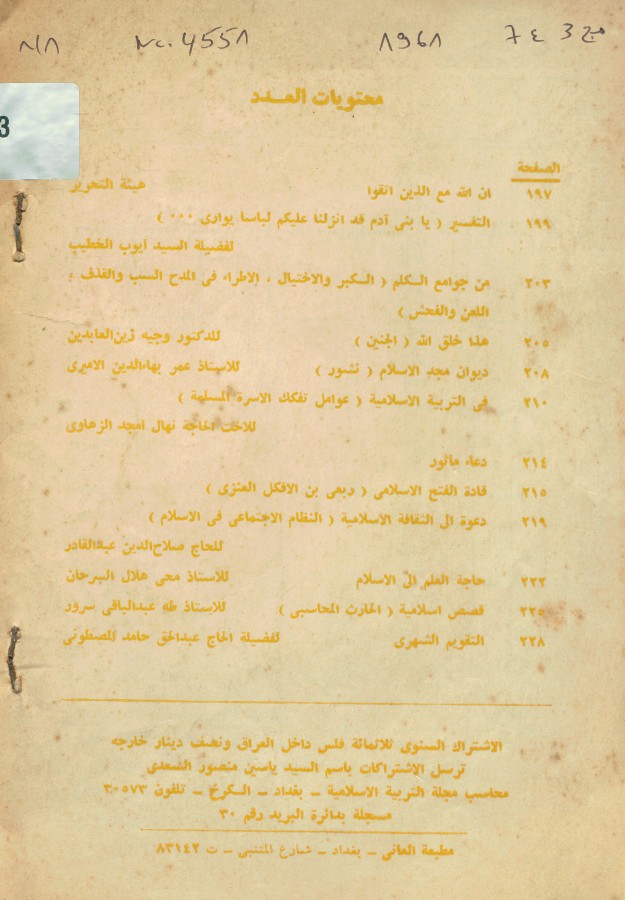 مج 3 ع 7 ١٩٦١ Nc. 4551 ٨/٨
محتويات العـــدد
3
الصفحة
١٩٧ ان الله مع الذين اتقوا هيئة التحرير
١٩٩ التفسير ( يا بنى آدم قد انزلنا عليكم لباسا يوارى ٠٠٠ )
لفضيلة السيد ايوب الخطيب
٢٠٣ من جوامع الـكلم ( الـكبر والاختيال ، الاطراء فى المدح السب والقذف ،
اللعن والفحش )
٢٠٥ هذا خلق الله ( الجنين ) للدكتور وجيه زين‌العابدين
٢٠٨ ديوان مجد الاسلام ( نشور ) للاستاذ عمر بهاءالدين الاميرى
٢١٠ فى التربية الاسلامية ( عوامل تفكك الاسرة المسلمة )
للاخت الحاجة نهال امجد الزهاوى
٢١٤ دعاء مأثور
٢١٥ قادة الفتح الاسلامى ( ربعى بن الافكل العنزى )
٢١٩ دعوة الى الثقافة الاسلامية ( النظام الاجتماعى فى الاسلام )
للحاج صلاح‌الدين عبدالقادر
٢٢٢ حاجة العلم الى الاسلام للاستاذ محى هلال السرحان
٢٢٥ قصص اسلامية ( الحارث المحاسبى ) للاستاذ طه عبدالباقى سرور
٢٢٨ التقويم الشهرى لفضيلة الحاج عبدالحق حامد المصطونى
الاشتراك السنوى ثلاثمائة فلس داخل العراق ونصف دينار خارجه
ترسل الاشتراكات باسم السيد ياسين منصور السعدى
محاسب مجلة التربية الاسلامية ـ بغداد ـ الـكرخ ـ تلفون ٣٠٥٧٣
مسجلة بدائرة البريد رقم ٣٠
مطبعة العانى ـ بغداد ـ شارع المتنبى ـ ت ٨٣١٤٢